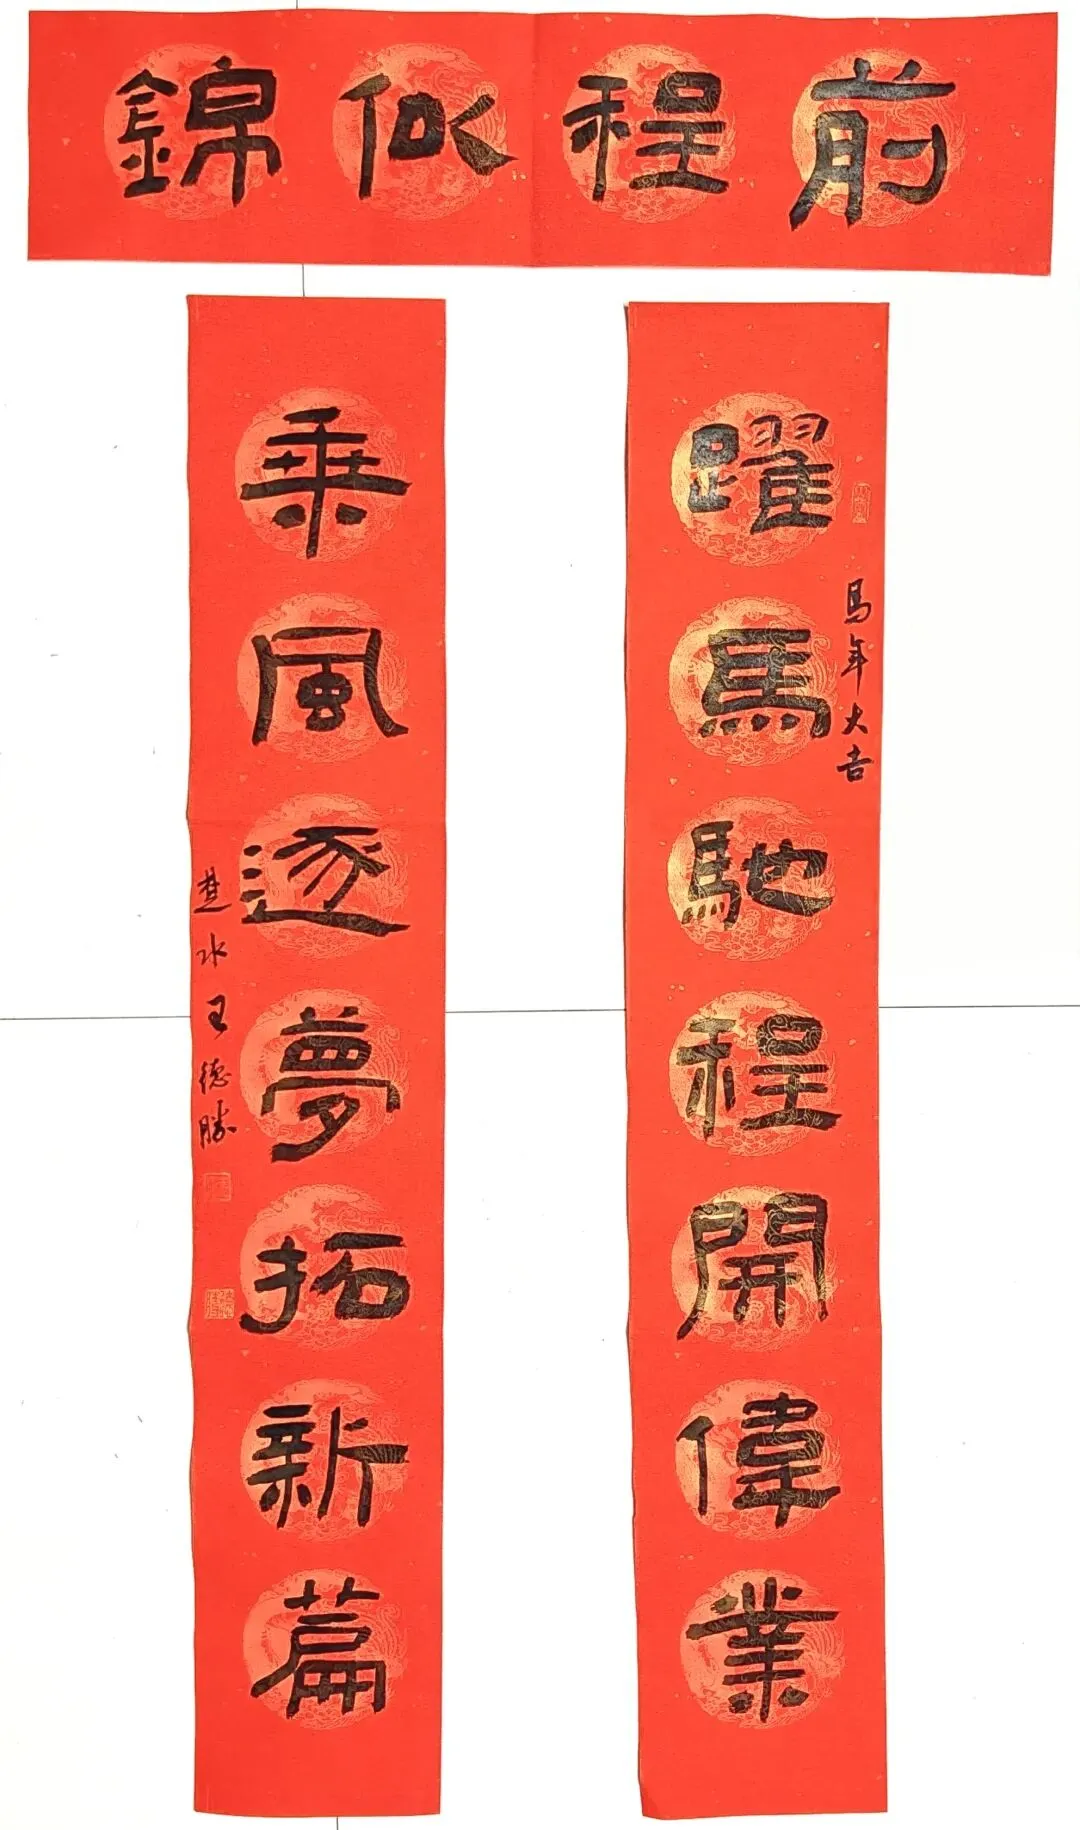 前程似錦
躍馬馳程開偉業
馬年大吉
乘風逐夢拓新篇
楚水王德勝